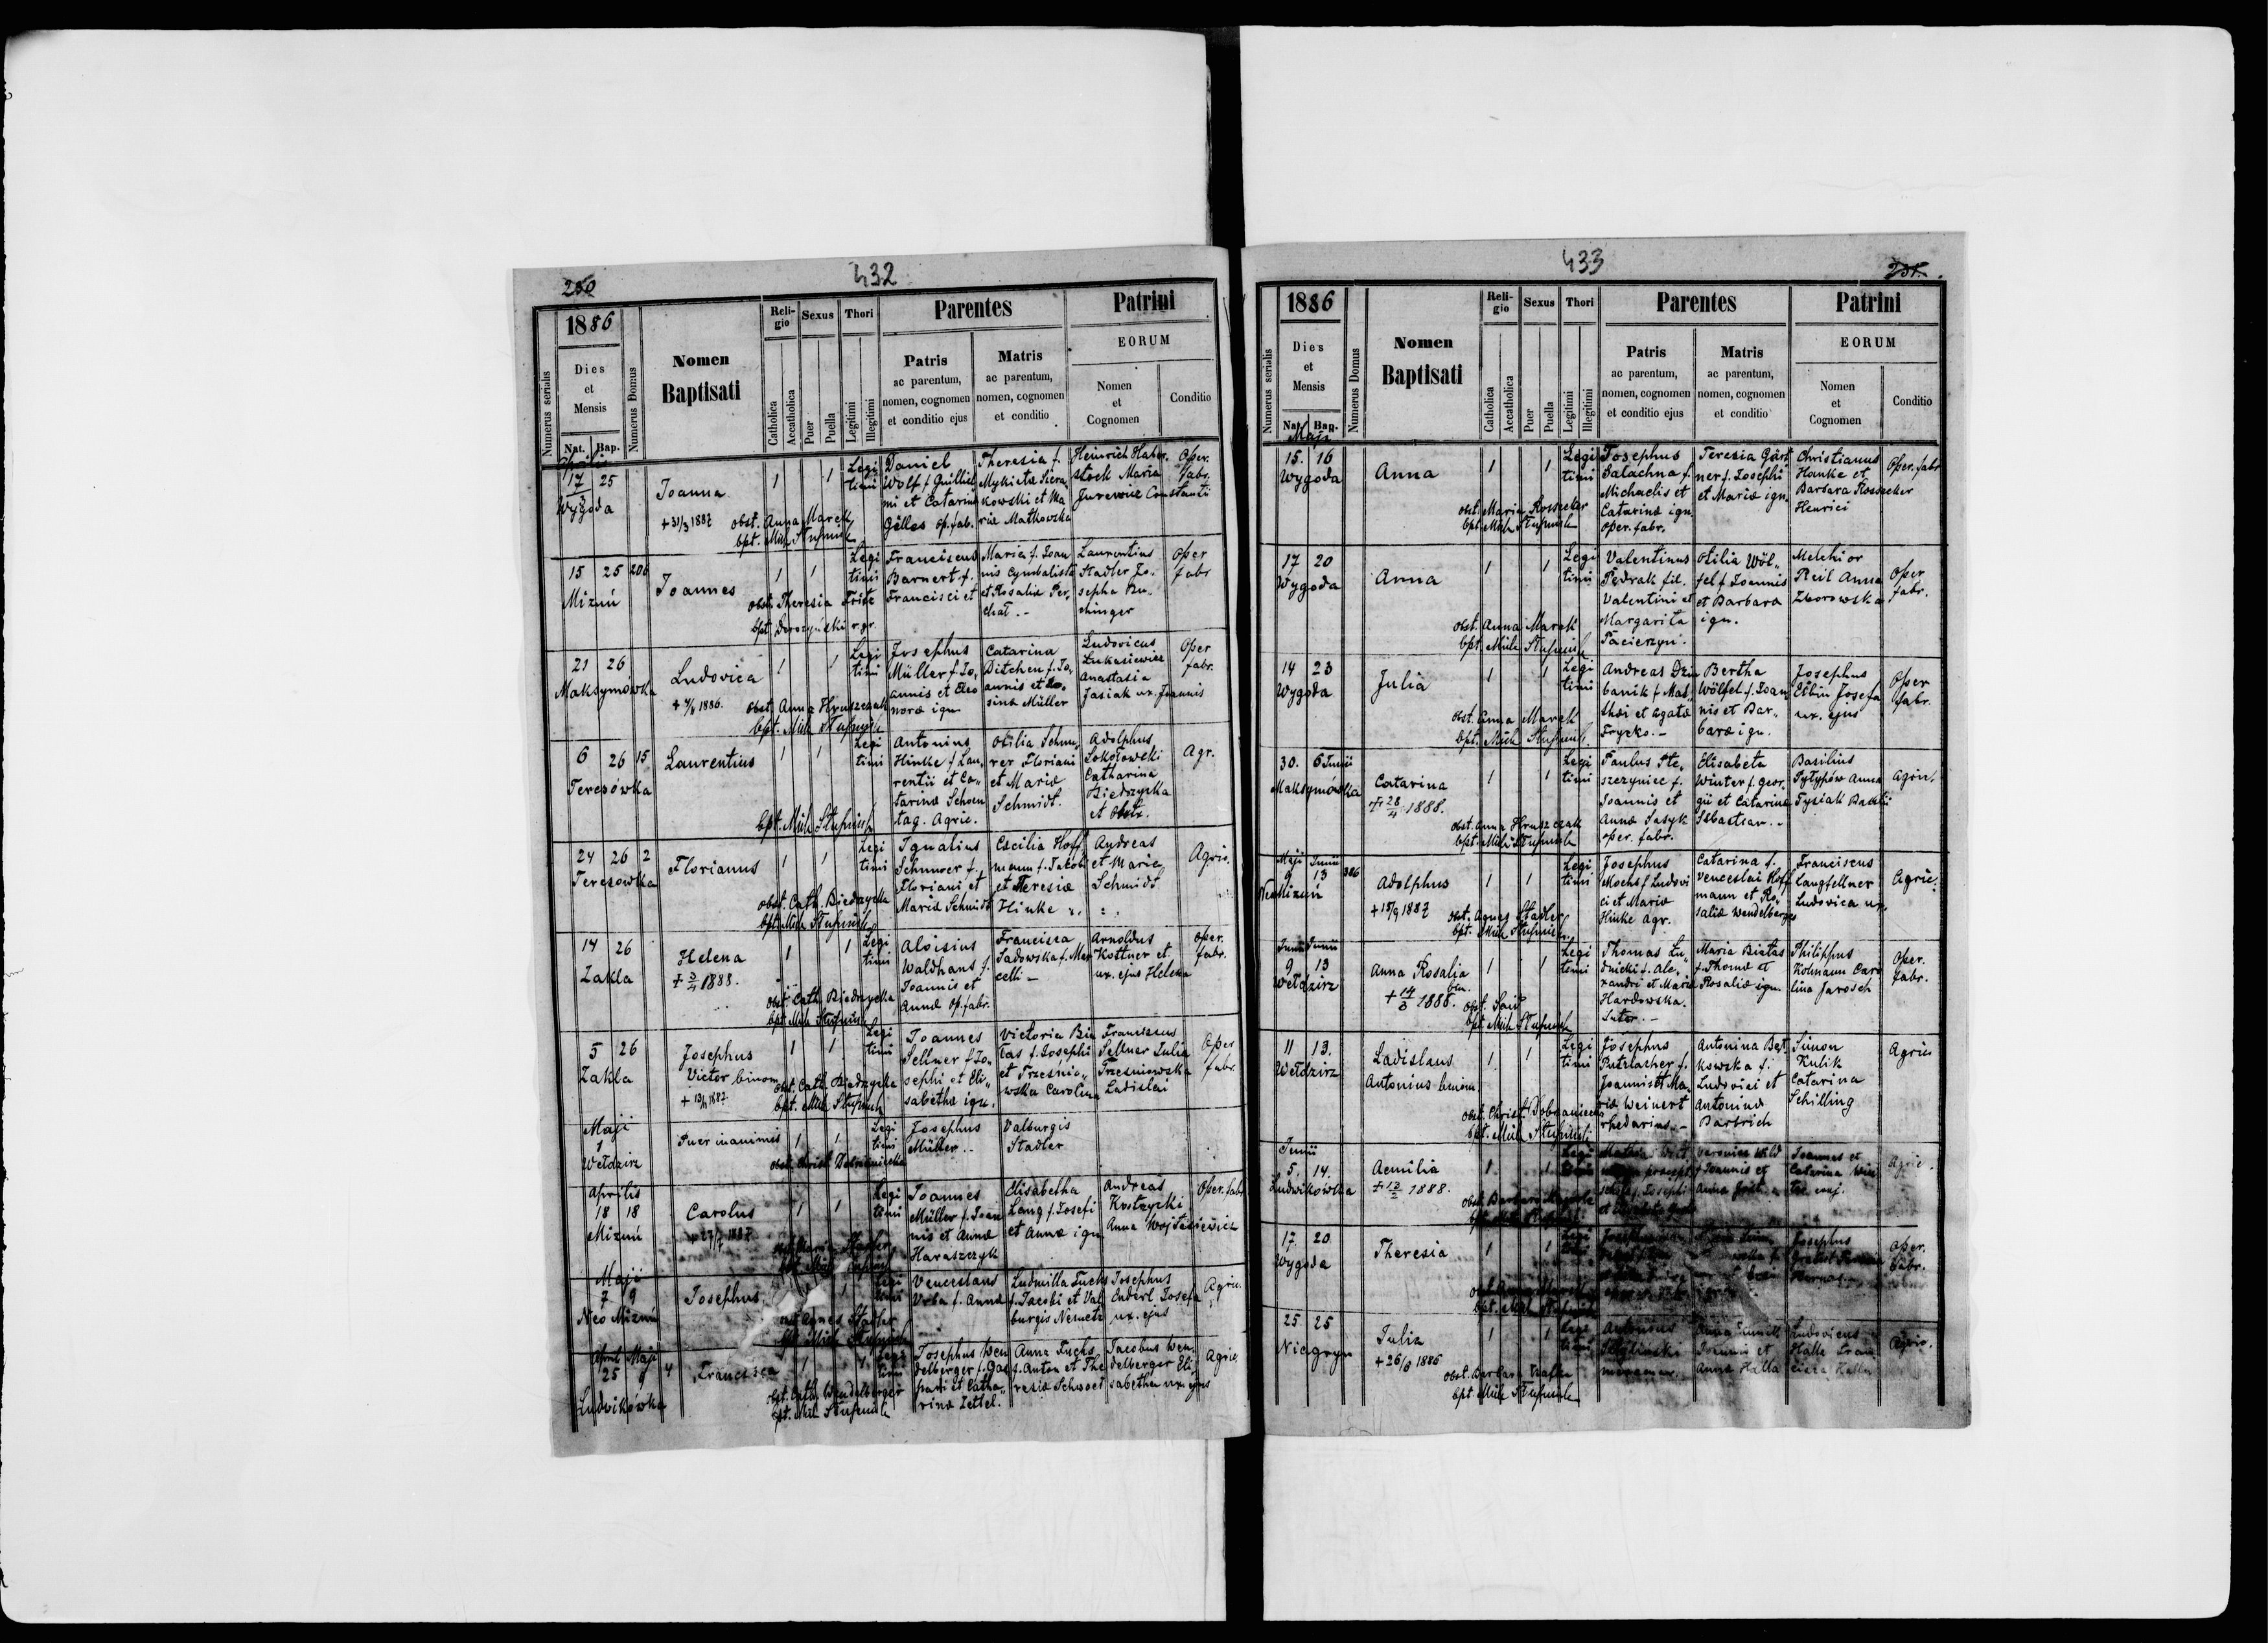 432
250
1886
Numerus serialis
Dies et Mensis
Nat. Bap.
Numerus Domus
Nomen Baptisati
Religio
Catholica
Accatholica
Sexus
Puer
Puella
Thori
Legitimi
Illegitimi
Parentes
Patris ac parentum, nomen, cognomen et conditio ejus
Matris ac parentum, nomen, cognomen et conditio
Patrini
EORUM
Nomen et Cognomen
Conditio
Aprilis
17 25
Wygoda
Joanna
+ 31/3 1887
obst. Anna Marek
bpt. Mich Stufnich
1 1
Legitimi
Daniel
Wolf f. Guilliel
mi et Catarina
Gelles op. fab.
Theresia f.
Mykieta Siera
kowski et Ma
riæ Matkowska
Heinrich Haber
stock Maria
Jurewicz Constanti
Oper. fabr.
15 25 206
Mizuń
Joannes
obst. Theresia Fritz
1 1
Legitimi
Franciscus
Barnert f.
Francisci et
Maria f. Joan
nis Cymbalista
et Rosalia Per
Laurentius
Stadler Jo
sepha Bu
chinger
Oper fabr
21 26
Maksymówka
Ludovica
+ 4/8 1886.
obst. Anna Hruszczak
bpt. Mich Stufnich
1 1
Legitimi
Josephus
Müller f. Jo
annis et Eleo
noræ ign
Catarina
Ditchen f. Jo
annis et Ro
sina Müller
Ludovicus
Lukasiewicz
Anastasia
Jasiak ux. Joannis
Oper fabr.
6 26 15
Teresówka
Laurentius
bpt. Mich Stufnich
1 1
Legitimi
Antonius
Hinke f. Lau
rentii et Ca
tarina Schoen
tag. Agric.
Otilia Schnu
rer Floriani
et Mariæ
Schmidt.
Adolphus
Sokołowski
Catharina
Biedrzycka
et obstr.
Agr.
24 26 2
Teresowka
Florianus
obst. Cath. Biedrzycka
bpt. Mich Stufnich
1 1
Legitimi
Ignatius
Schnurer f.
Floriani et
Maria Schmidt
Cæcilia Hoff
mann f. Jakobi
et Theresiæ
Hinke
Andreas
et Maria
Schmidt
Agric.
14 26
Zakla
Helena
1888.
obst. Cath. Biedrzycka
bpt. Mich Stufnich
1 1
Legitimi
Aloisius
Waldhans f.
Joannis et
Annæ op. fabr.
Francisca
Sadowska f. Mar
celli -
Arnoldus
Kottner et
ux. ejus Helena
oper. fabr.
5 26
Zakla
Josephus
Victor binom
obst. Cath. Biedrzycka
bpt. Mich Stufnich
1 1
Legitimi
Joannes
Sellner f. Jo
sephi et Eli
sabetha ign.
Victoria Bia
łas f. Josephi
et Trzesnio
wska Carolina
Franciscus
Sellner Julia
Trzesniowska
Ladislai
Oper fabr.
Maji
1
Wełdzirz
Puer inanimis
1 1
Legitimi
Josephus
Müller
Valburgis
Stadler
Aprilis
18 18
Mizuń
Carolus
+ 27/7 1887
1 1
Legitimi
Joannes
Müller f. Joan
nis et Annæ
Haraszczyk
Elisabetha
Lang f. Josefi
et Annæ ign
Andreas
Kostrzycki
Anna Wojtasiewicz
Oper. fabr
Maji
7 9
Neo Mizuń
Josephus
Agnes Stadler
bpt. Mich Stufnich
1
Legitimi
Venceslaus
Vrba f. Annæ
Ludmilla Fuchs
f. Jacobi et Val
burgis Nemetz
Josephus
Enderl Josefa
ux. ejus
Agric.
April Maji
25 9 4
Ludwikówka
Francisca
obst. Cath. Wendelberger
bpt. Mich Stufnich
1 1
Legitimi
Josephus Wen
delberger f. Gas
pari et Catha
rinæ Zettel.
Anna Fuchs
f. Anton et The
resiæ Schwoet
Jacobus Wen
delberger Eli
sabetha ux. ejus
Agric.
433
251.
1886
Numerus serialis
Dies et Mensis
Nat. Bap.
Numerus Domus
Nomen Baptisati
Religio
Catholica
Accatholica
Sexus
Puer
Puella
Thori
Legitimi
Illegitimi
Parentes
Patris ac parentum, nomen, cognomen et conditio ejus
Matris ac parentum, nomen, cognomen et conditio
Patrini
EORUM
Nomen et Cognomen
Conditio
Maji
15. 16
Wygoda
Anna
obst. Maria Rossecker
bpt. Mich Stufnich
1 1
Legitimi
Josephus
Balachna f.
Michaelis et
Catarinæ ign.
oper. fabr.
Teresia Gärt
ner f. Josephi
et Mariæ ign.
Christianus
Hanke et
Barbara Rossecker
Henrici
Oper. fabr
17 20
Wygoda
Anna
obst. Anna Marek
bpt. Mich Stufnich
1 1
Legitimi
Valentinus
Pędrak fil.
Valentini et
Margarita
Pacierzyn.
Otilia Wöl
fel f. Joannis
et Barbara
ign.
Melchior
Reil Anna
Zborowska
Oper fabr.
14 23
Wygoda
Julia
obst. Anna Marek
bpt. Mich Stufnich
1 1
Legitimi
Andreas Dziu
banik f. Mat
thæi et Agatæ
Fryzko.-
Bertha
Wölfel f. Joan
nis et Bar
baræ ign.
Josephus
Elbin Josefa
ux. ejus
Oper fabr.
30. 6 Junii
Maksymówka
Catarina
+ 28/4 1888.
obst. Anna Hruszczak
bpt. Mich Stufnich
1 1
Legitimi
Paulus Ste
szczynicz f.
Joannis et
Annæ Sasyk
oper. fabr.
Elisabeta
Winter f. Geor
gii et Catarina
Sebastian.-
Basilius
Pytypów Anna
Tysiak Basilii
Agric.
Maji Junii
9 13 386
Neo Mizuń
Adolphus
+ 15/9 1887
obst. Agnes Stadler
bpt. Mich Stufnich
1 1
Legitimi
Josephus
Mochs f. Ludovi
ci et Mariæ
Hinke agr.
Catarina f.
Venceslai Hoff
mann et Ro
saliæ Wendelberger
Franciscus
Langfellner
Ludovica ux.
Agric.
Junii Junii
9 13
Wełdzirz
Anna Rosalia
bin.
+ 14/3 1888.
bpt. Mich Stufnich
1 1
Legitimi
Thomas Lu
dnicki f. Ale
xandri et Maria
Hardowska.
Sutor.-
Maria Białas
f. Thomæ et
Rosaliæ ign
Philippus
Kohmann Caro
lina Jarosch
Oper. fabr.
11 13.
Wełdzirz
Ladislaus
Antonius binom
bpt. Mich Stufnich
1 1
Legitimi
Josephus
Putzlacher f.
Joannis et Ma
riæ Weinert
rhedarius.-
Antonina Bąt
kowska f.
Ludovici et
Antoninæ
Bartrich
Simon
Kulik
Catarina
Schilling
Agric
Junii
5. 14.
Ludwikówka
Aemilia
+ 12/2 1888.
1 1
Veronica Wild
f. Joannis et
Joannes et
Catarina
Agric.
17. 20
Wygoda
Theresia
bpt. Mich Stufnich
1 1
Josephus
Oper. fabr.
25 25
Niagryn
Julia
+ 26/8 1886
bpt. Mich Stufnich
1 1
Legitimi
Antonius
Anna
Joannis et
Anna Halla
Ludovicus
Halla Fran
cisca Halla
Agric.